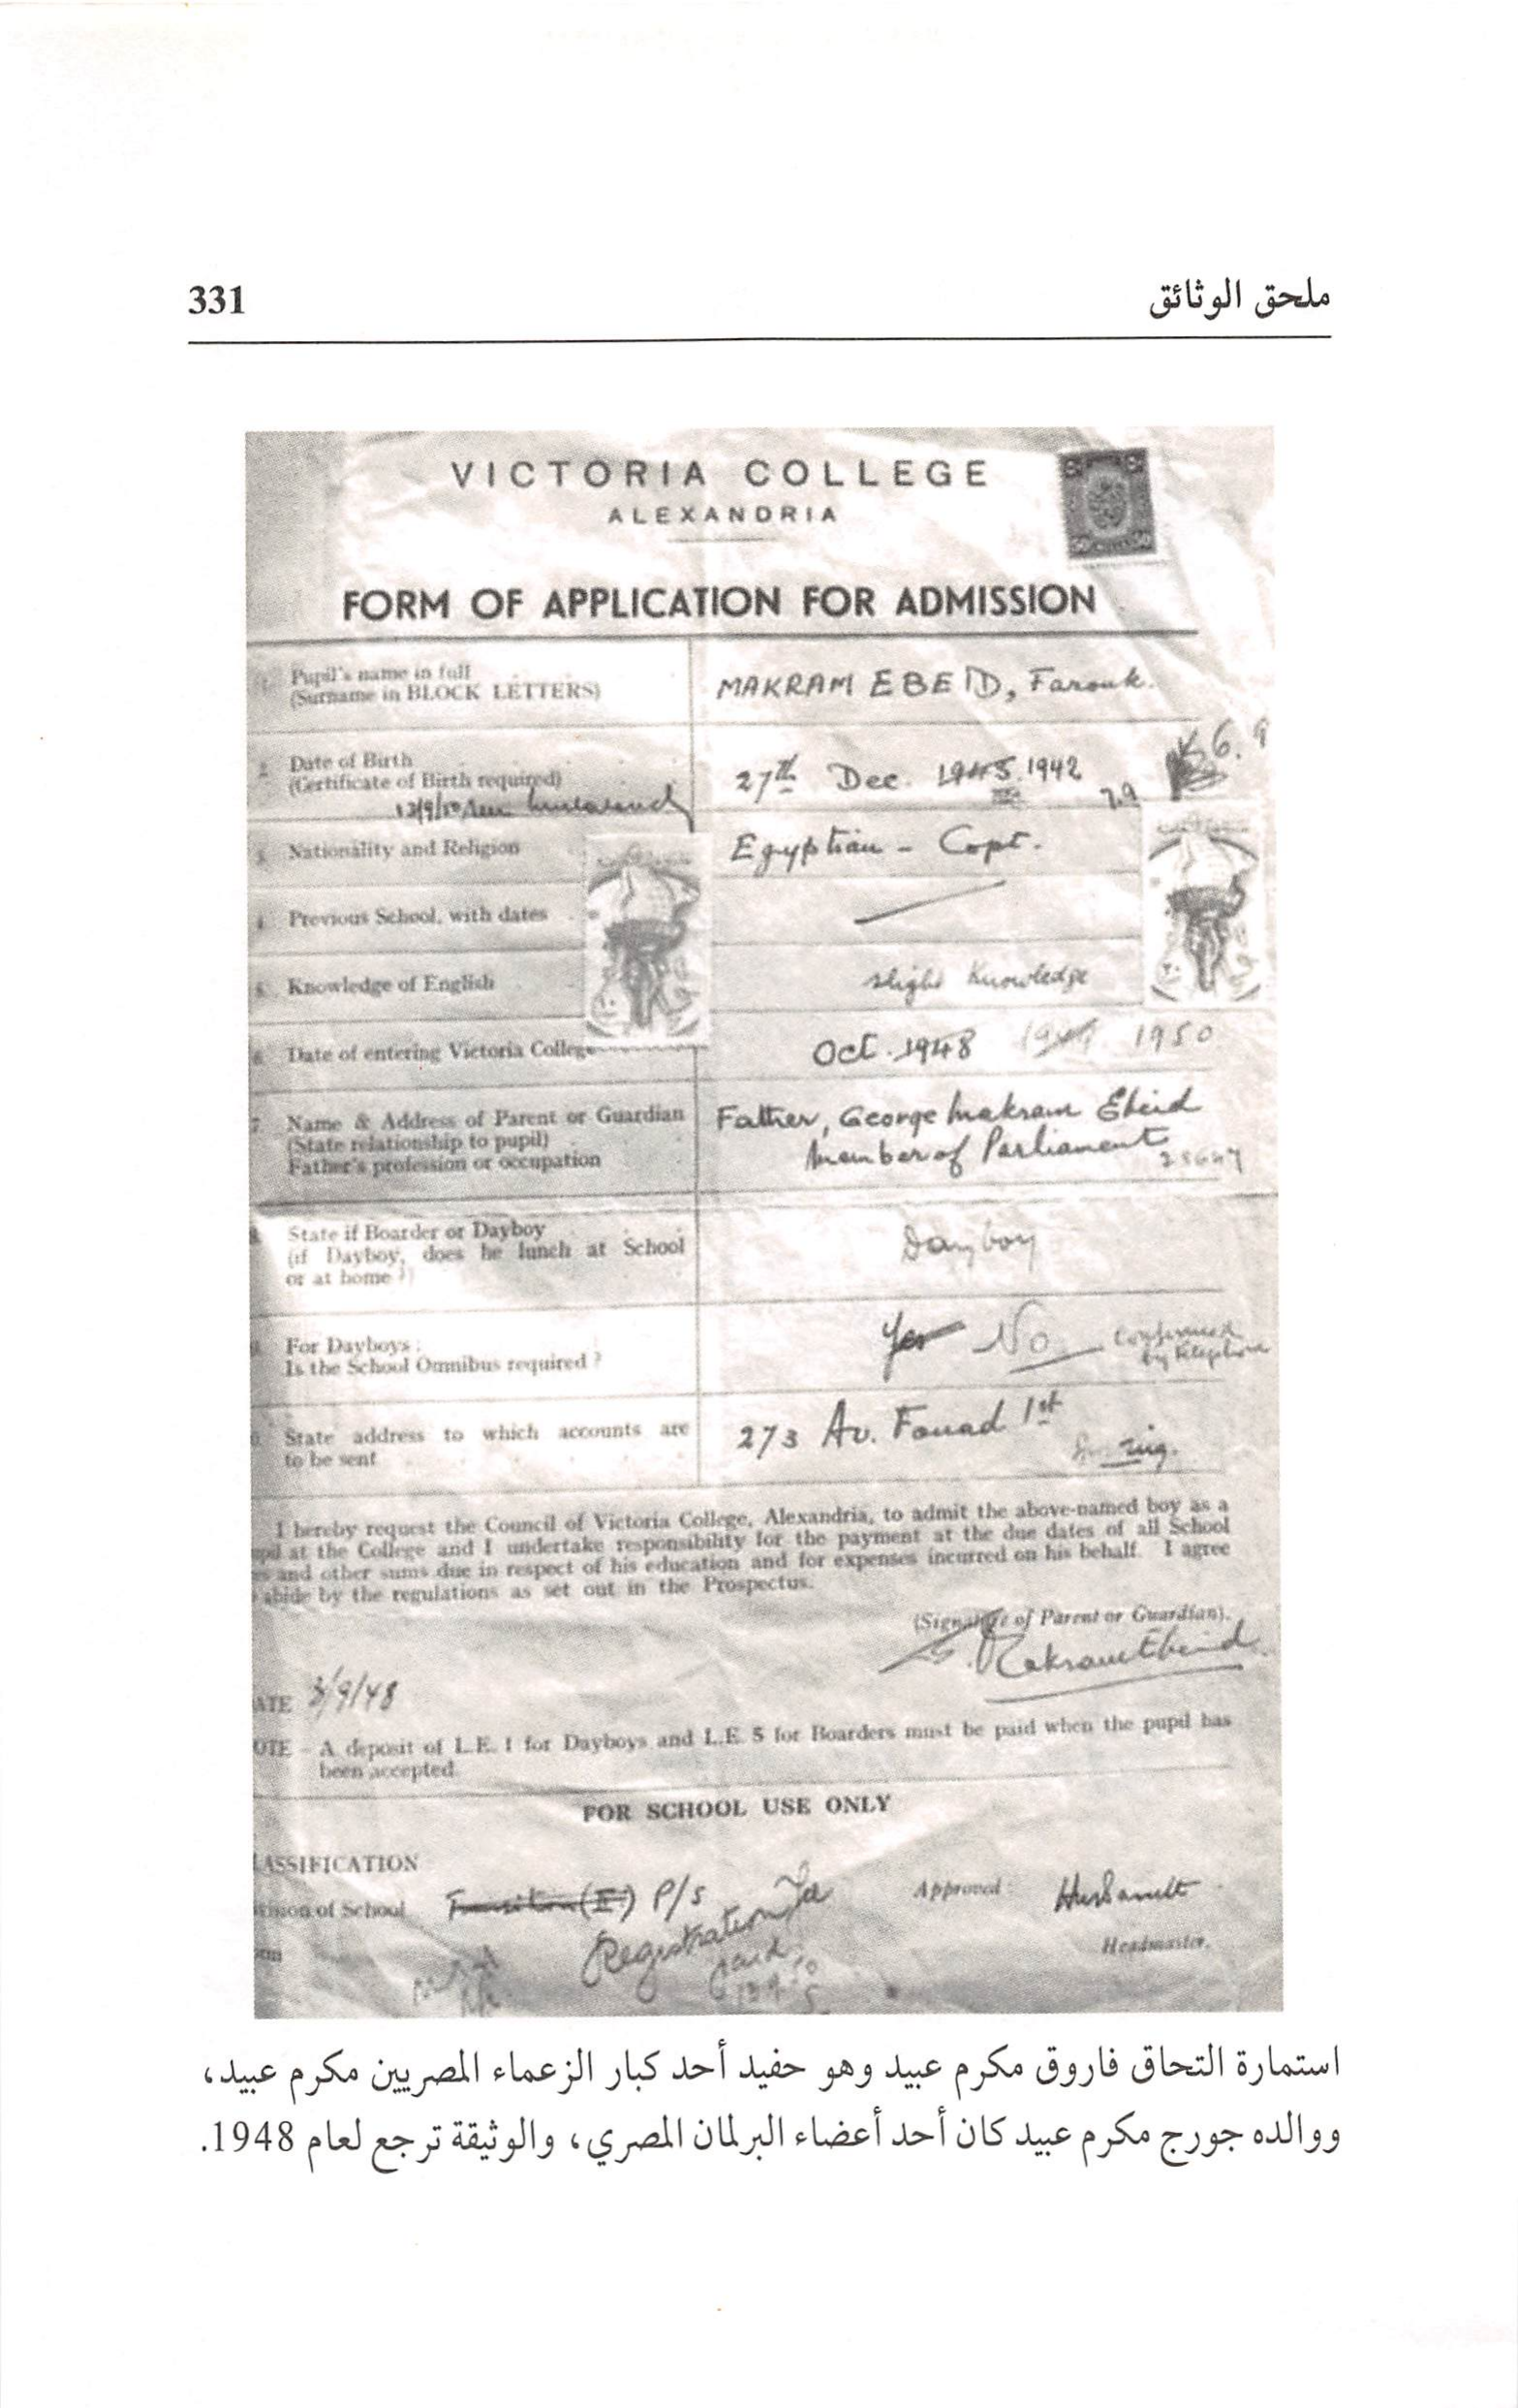 ملحق الوثائق 331
VICTORIA COLLEGE
ALEXANDRIA
FORM OF APPLICATION FOR ADMISSION
Pupil's name in full
(Surname in BLOCK LETTERS)
MAKRAM EBEID, Farouk.
Date of Birth
(Certificate of Birth required)
27th Dec. 1945 1942
7.9
Nationality and Religion
Egyptian - Copt.
Previous School, with dates
Knowledge of English
slight Knowledge
Date of entering Victoria College
Oct. 1948 1949 1950
7. Name & Address of Parent or Guardian
(State relationship to pupil)
Father's profession or occupation
Father, George Makram Ebeid
Member of Parliament
State if Boarder or Dayboy
(if Dayboy, does he lunch at School
or at home?)
Dayboy
For Dayboys:
Is the School Omnibus required?
Yes No confirmed
by telephone
State address to which accounts are
to be sent
273 Av. Fouad 1st
I hereby request the Council of Victoria College, Alexandria, to admit the above-named boy as a
at the College and I undertake responsibility for the payment at the due dates of all School
and other sums due in respect of his education and for expenses incurred on his behalf. I agree
abide by the regulations as set out in the Prospectus.
(Signature of Parent or Guardian).
G. Makram Ebeid
ATE 3/9/48
OTE - A deposit of L.E. 1 for Dayboys and L.E. 5 for Boarders must be paid when the pupil has
been accepted
FOR SCHOOL USE ONLY
LASSIFICATION
of School Transition (E) P/S
Approved:
Registration
paid
Headmaster.
استمارة التحاق فاروق مكرم عبيد وهو حفيد أحد كبار الزعماء المصريين مكرم عبيد،
ووالده جورج مكرم عبيد كان أحد أعضاء البرلمان المصري، والوثيقة ترجع لعام 1948.